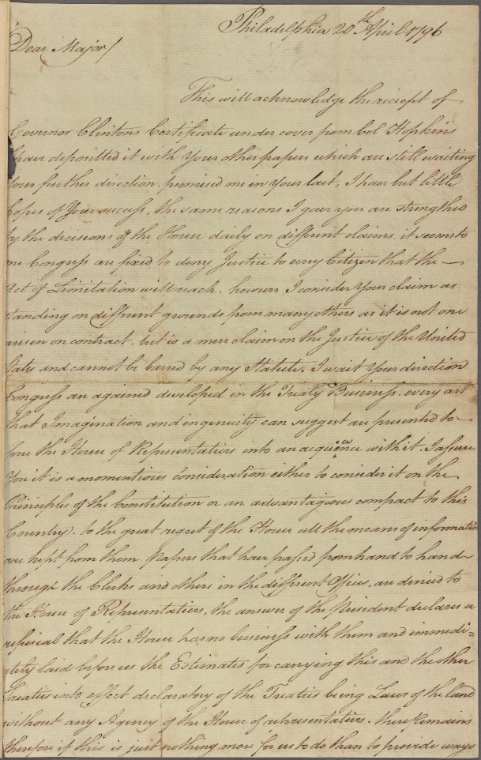 Philadelphia 20th April 1796
Dear Major/
This will acknowledge the reciept of
Governor Clintons Certificate under cover from Col Hopkins
I have deposited it with your other papers which are still waiting
your further direction, promised me in your last, I have but little
hopes of your success, the same reasons I gave you are strengthed
by the decisions of the House daily on different claims, it seems to
me Congress are fixed to deny Justice to every Citizen that the
Act of Limitation will reach. however I consider your claim as
standing on different grounds from many others as it is not one
arisen on contract. but is a mere claim on the Justice of the United
States and cannot be barred by any Statute. I wait your direction
Congress are againd develloped in the Treaty Business. every art
that Imagination and ingenuity can suggest are presented to
fore the House of Representatives into an acquience with it. I assure
you it is a momentious consideration either to consider it on the
Principles of the Constitution or an advantagious compact to this
Country. to the great regret of the House all the means of informatio
are kept from them Papers that have passed from hand to hand
through the Clerks and others in the different Offices, are denied to
the House of Representatives. the answer of the President declares a
refusal that the House has no business with them and immedi=
ately laid before us the Estimates for carrying this and the other
Treaties into effect declaratory of the Treaties being Laws of the land
without any Agency of the House of representatives. there remains
therefore if this is just nothing more for us to do than to provide ways